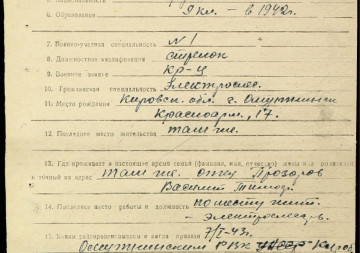 6. Образование 9 кл. – в 1942 г.
7. Военно-учетная специальность № 1
8. Должностная квалификация стрелок
9. Военное звание кр-ц
10. Гражданская специальность Электрослес.
11. Место рождения Кировск. обл. г. Омутнинск
Красноарм., 17.
12. Последнее место жительства там же.
13. Где проживает в настоящее время семья (фамилия, имя, отчество) жены или родителей
и точный их адрес там же отец Прозоров
Василий
14. Последнее место работы и должность по месту жит.
– электрослесарь.
15. Каким райвоенкоматом и когда призван 7/I-43г.
Омутнинским РВК